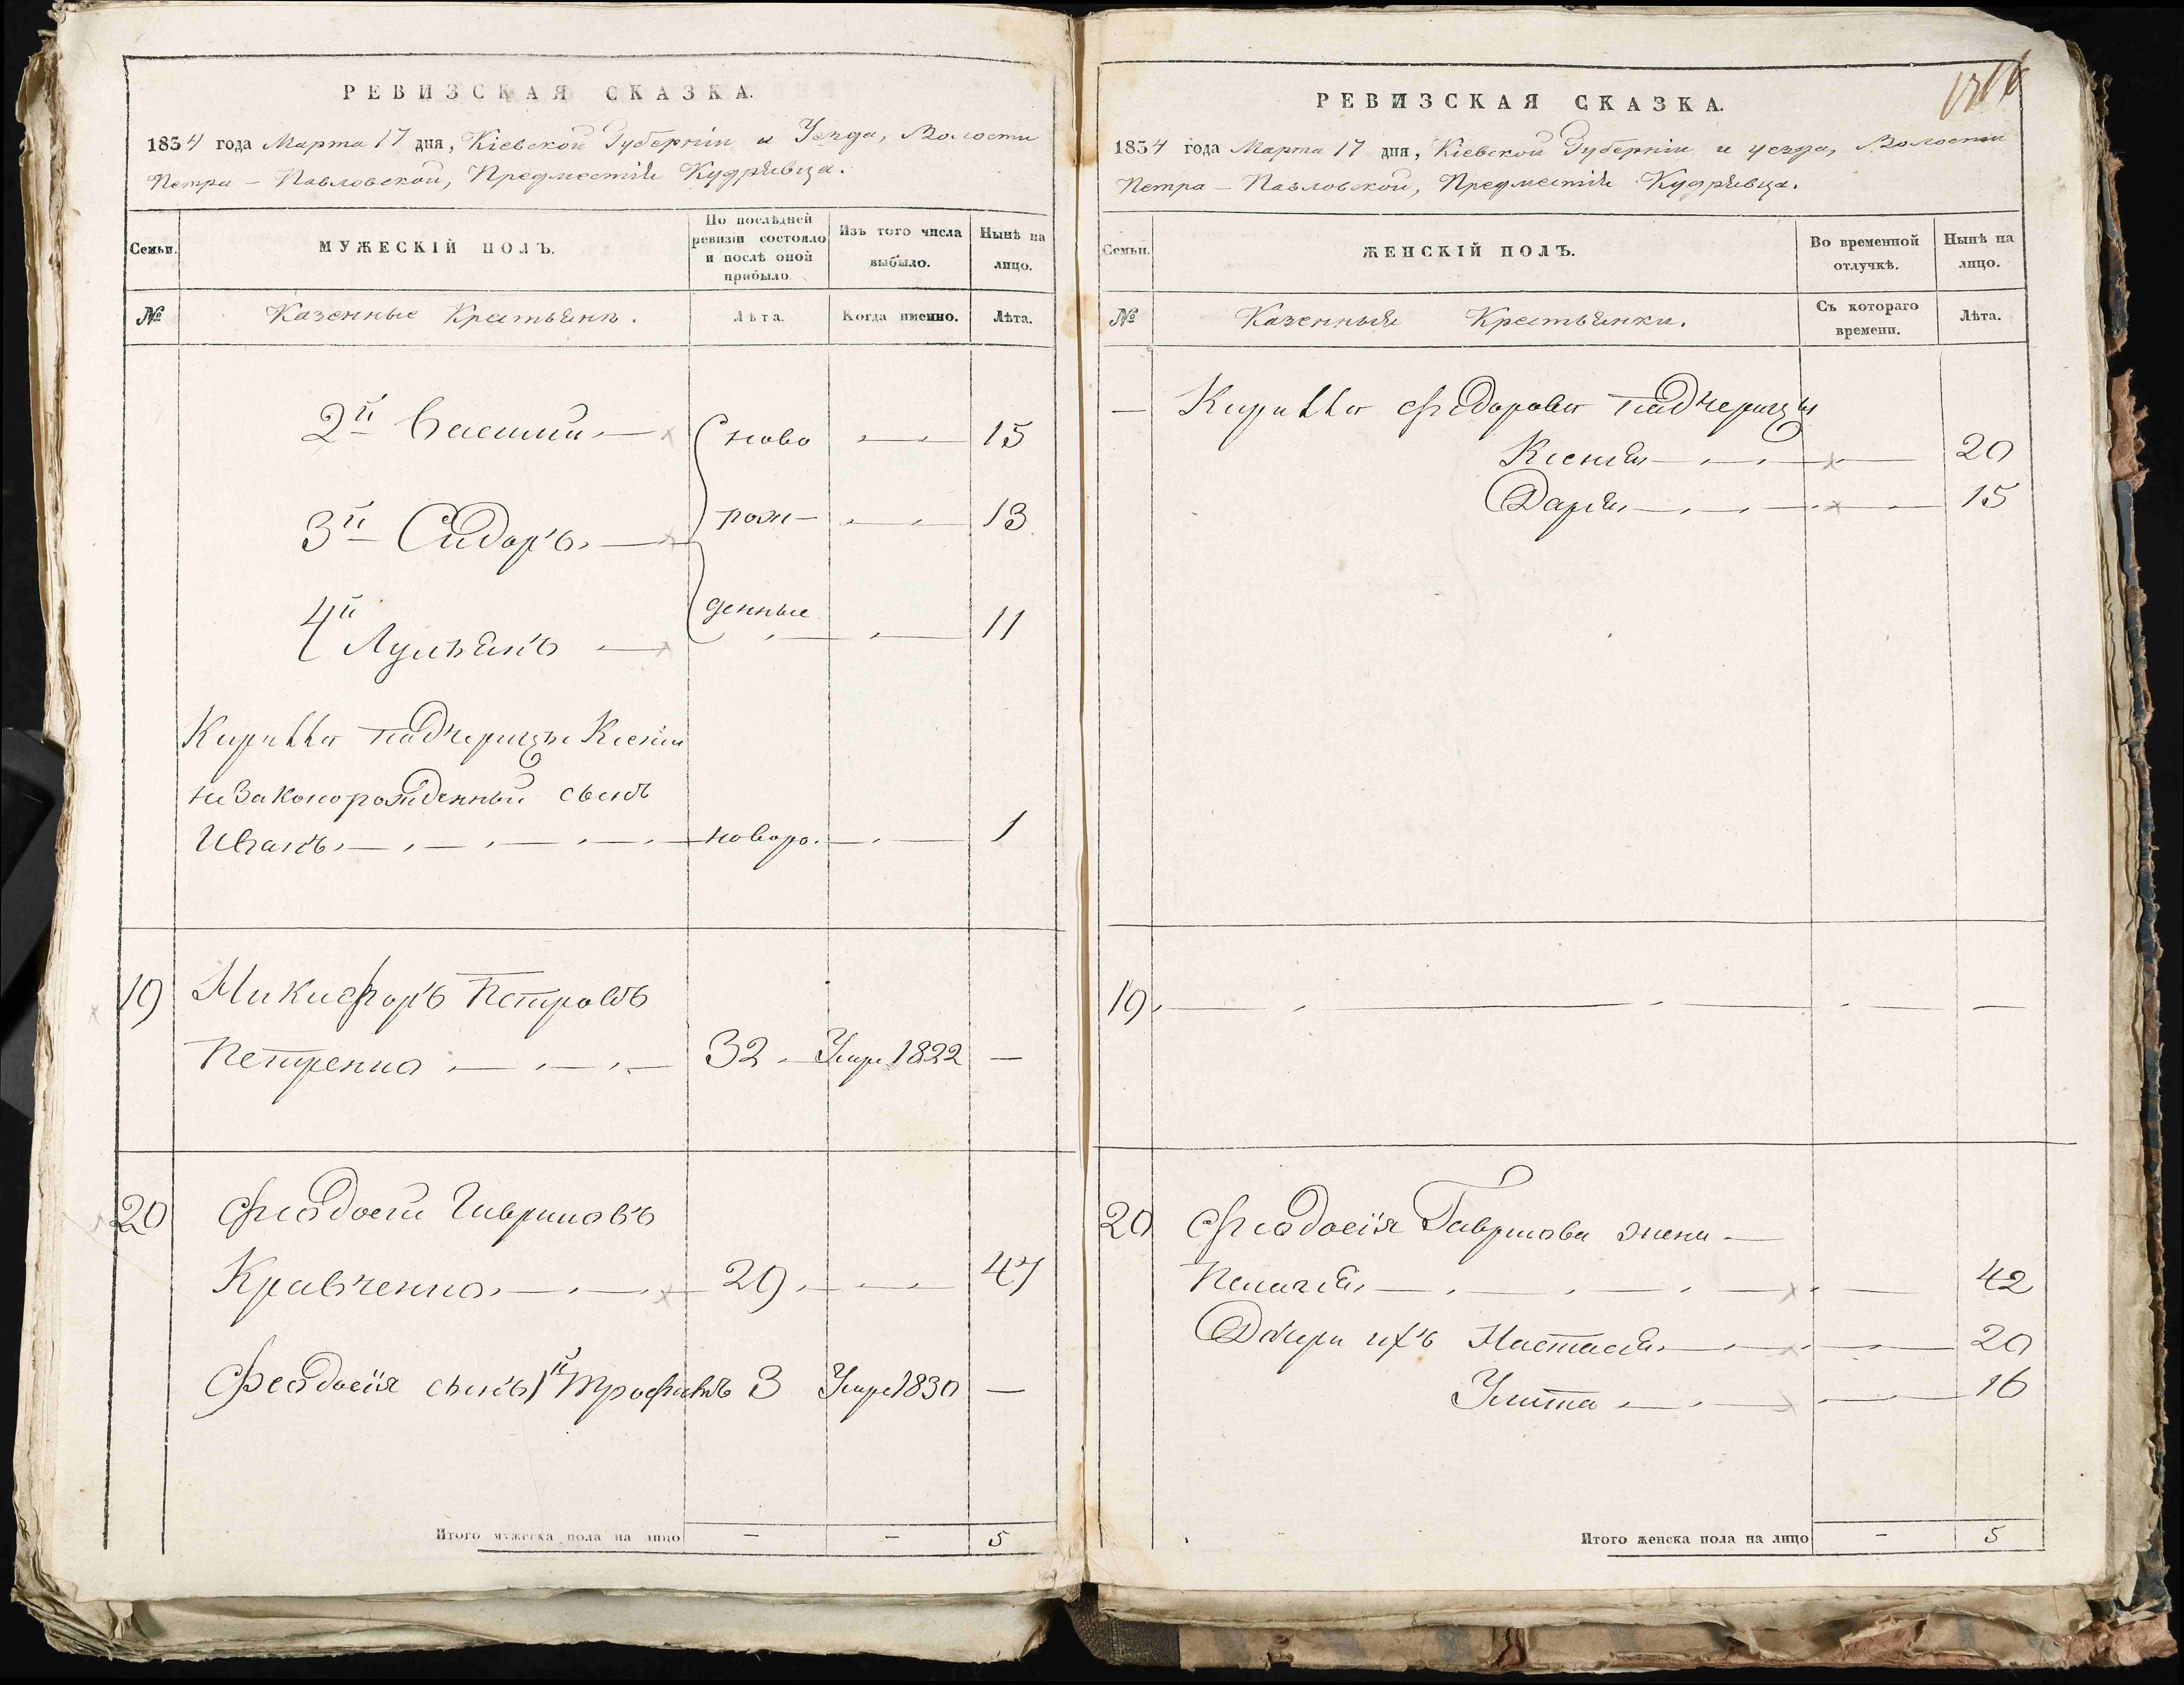 РЕВИЗСКАЯ СКАЗКА.
1834 года Марта 17 дня, Кіевской Губерніи и Уезда, Волости
Петра – Павловской, Предместія Кудрявца.
Семьи.
МУЖЕСКІЙ ПОЛЪ.
По послѣдней ревизіи состояло и послѣ оной прибыло
Изъ того числа выбыло.
Нынѣ на лицо.
№
Казенные Крестьяне.
Лѣта.
Когда именно.
Лѣта.
2й Василий — ново — 15
3й Сидоръ — рож– — 13
4й Лукьянъ — денные — 11
Кирилла падчерицы Ксеніи
незаконорожденный сынъ
Иванъ — новоро. — 1
19 Никифоръ Петровъ
Петренко — 32 — Умре 1822 —
20 Феодосий Гавриловъ
Кравченко — 29 — 47
Феодосія сынъ 1й Трофимъ 3 Умре 1830 —
Итого мужеска пола на лицо – – 5
РЕВИЗСКАЯ СКАЗКА.
1834 года Марта 17 дня, Кіевской Губерніи и уезда, Волости
Петра – Павловской, Предместія Кудрявца.
Семьи.
ЖЕНСКІЙ ПОЛЪ.
Во временной отлучкѣ.
Нынѣ на лицо.
№
Казенныя Крестьянки.
Съ котораго времени.
Лѣта.
— Кирилла Федорова падчерицы
Ксенія — 20
Дарія — 15
19 —
20 Феодосія Гаврилова жена —
Пелагея — 42
Дочери ихъ Настасія — 20
Улита — 16
Итого женска пола на лицо – 5